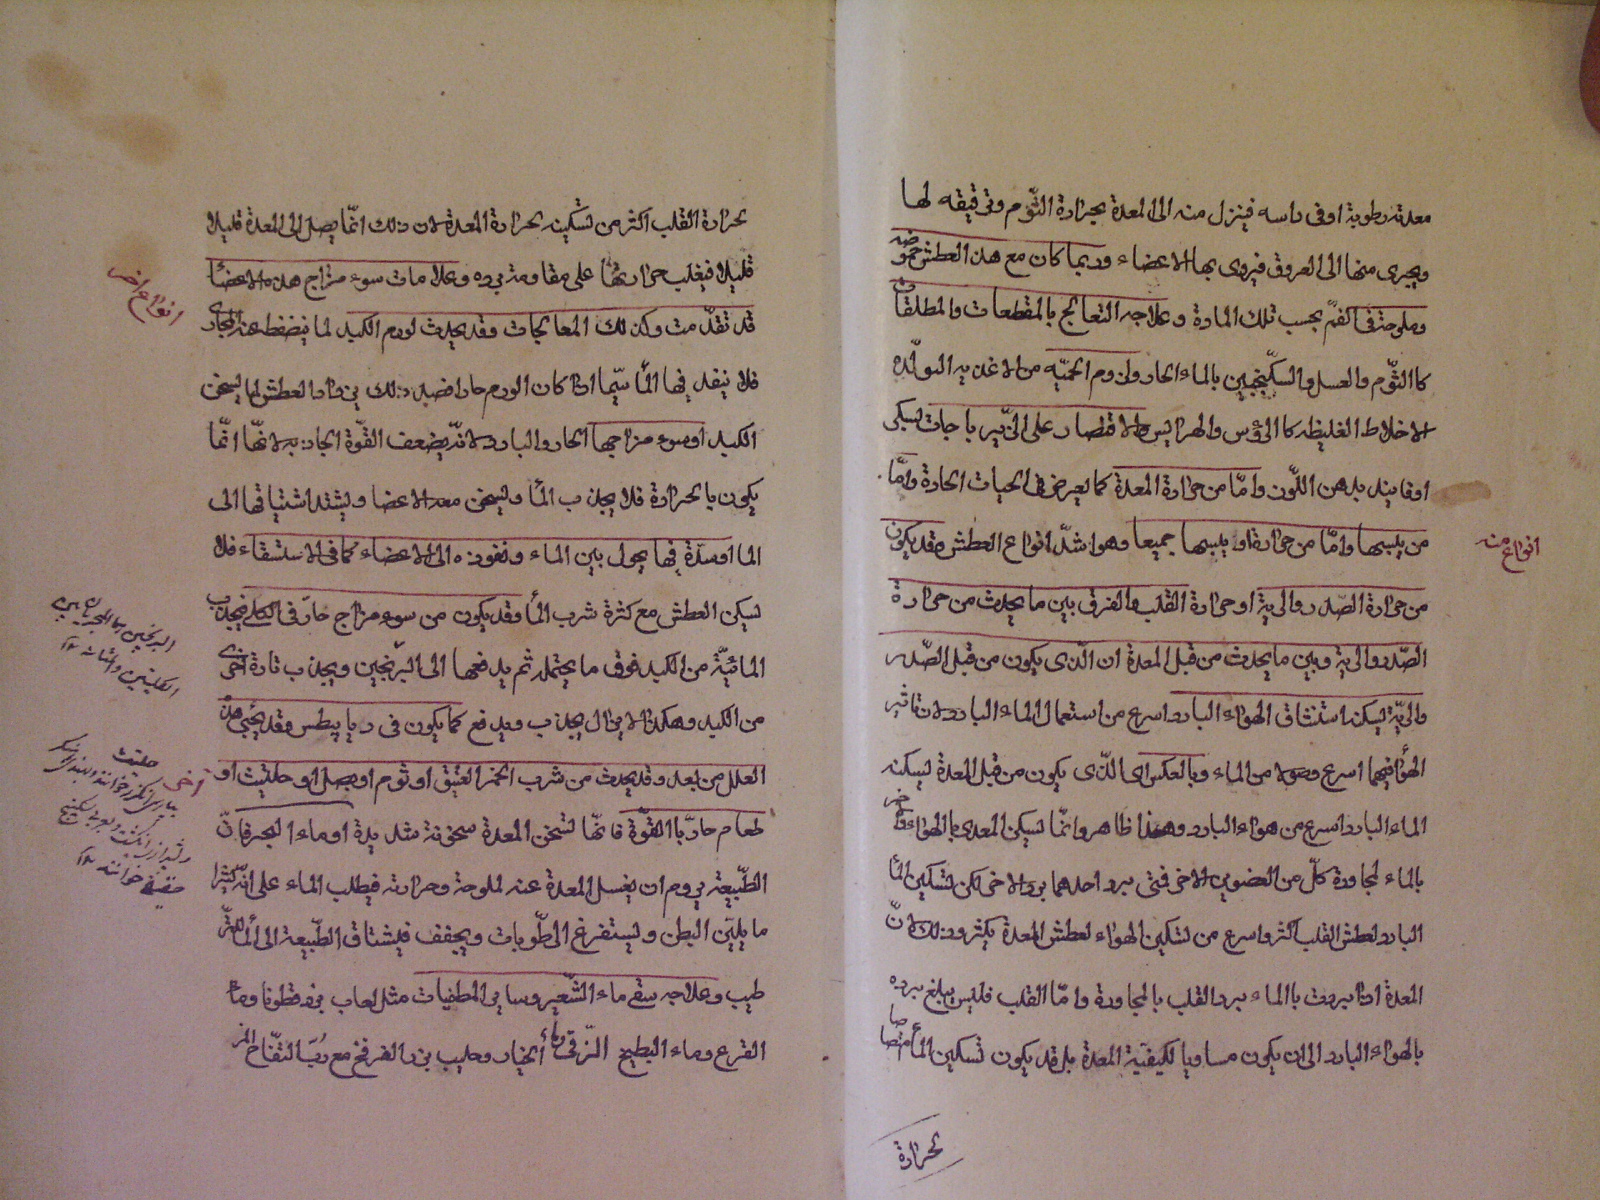 معدته رطوبة او فى راسه فينزل منه الى المعدة بحرارة الثّوم وترقيقه لها
ويجرى منها الى العروق فيروى بها الاعضاء وربما كان مع هذا العطش حموضه
وملوحة فى الفمّ بحسب تلك المادة وعلاجه التعالج بالمقطعات والملطفات
كاالثّوم والعسل والسكّنجبين بالماء الحار ولزوم الحميّه من الاغذيه المولّده
الاخلاط الغليظه كاالرؤس والهرايس والاقتصار على الزّيرباجات بسكر
او فانيد بدهن اللّوز وامّا من حرارة المعدة كما يعرض فى الحميات الحادة وامّا
من يبسها وامّا من حرارة او يبسها جميعا وهو اشدّ انواع العطش وقد يكون
من حرارة الصّدر والرية او حرارة القلب والفرق بين ما يحدث من حرارة
الصّدر والرية وبين ما يحدث من قبل المعدة ان الّذى يكون من قبل الصّدر
والريّة يسكنه استنشاق الهواء البارد اسرع من استعمال الماء البارد لان تاثير
الهوأ فيهما اسرع من الماء وبالعكس اى الّذى يكون من قبل المعدة يسكنه
الماء البارد اسرع من هواء البارد وهذا ظاهر وانّما يسكن المعدى بالهواء
بالماء لمجاورة كلّ من العضوين الاخر فمتى برد احدهما برد الاخر لكن تسكين المأ
البارد لعطش القلب اكثر واسرع من تسكين الهواء لعطش المعدة بكثير وذلك لانّ
المعدة اذا بردت باالماء برد القلب بالمجاورة وامّا القلب فليس يبلغ برده
بالهواء البارد الى ان يكون مساويا لكيفيّة المعدة بل قد يكون تسكين المأ
بحرارة
انواع منه
بحرارة القلب اكثر من تسكينه بحرارة المعدة لان ذلك انّما يصل الى المعدة قليلا
قليلا فيغلب حرارتها على مقاومة برده وعلامات سوء مزاج هذه الاعضأ
قد تقدّمت وكذلك المعالجات وقد يحدث لورم الكبد لما ينضغط عنه المجارى
فلا ينفذ فيها المأ سيّما اذا كان الورم حارا فبعد ذلك يزداد العطش لما يسخن
الكبد او سوء مزاجها الحار والبارد لانّه يضعف القوّة الجاذبه لانّها انّما
يكون بالحرارة فلا يجذب المأ ويسخن معه الاعضا ويشتد اشتياقها الى
الما او سدّة فيها يحول بين الماء ونفوذه الى الاعضاء كما فى الاستسقاء فلا
يسكن العطش مع كثرة شرب المأ وقد يكون من سوء مزاج حارّ فى الكلى فيجذب
المائيّة من الكبد فوق ما يحتمله ثم يدفعها الى البرنجين ويجذب تارة اخرى
من الكبد وهكذا لايزال يجذب ويدفع كما يكون فى ديابيطس وقد يجئ هذه
العلل من بعد وقد يحدث من شرب الخمر العتيق او ثوم او بصل او حلتيت او
طعام حارّ باالقوّة فانّها تسخن المعدة سخونة شديدة او ماء البحر فانّ
الطّبيعة يروم ان يغسل المعدة عنه لملوحة وحرارته فيطلب الماء على انّه كثيرا
ما يليّن البطن ويستفرغ الرطّوبات ويجفف فيشتاق الطّبيعة الى المأ
طيب وعلاجه سقى ماء الشّعير وساير المطفيات مثل لعاب بزرقطونا وماء
القرع وماء البطيخ الزّقى وماء الخيار وحليب بزر الفرفخ مع ربّ التفّاح المز
انواع اخر
اخرى
حلتيت